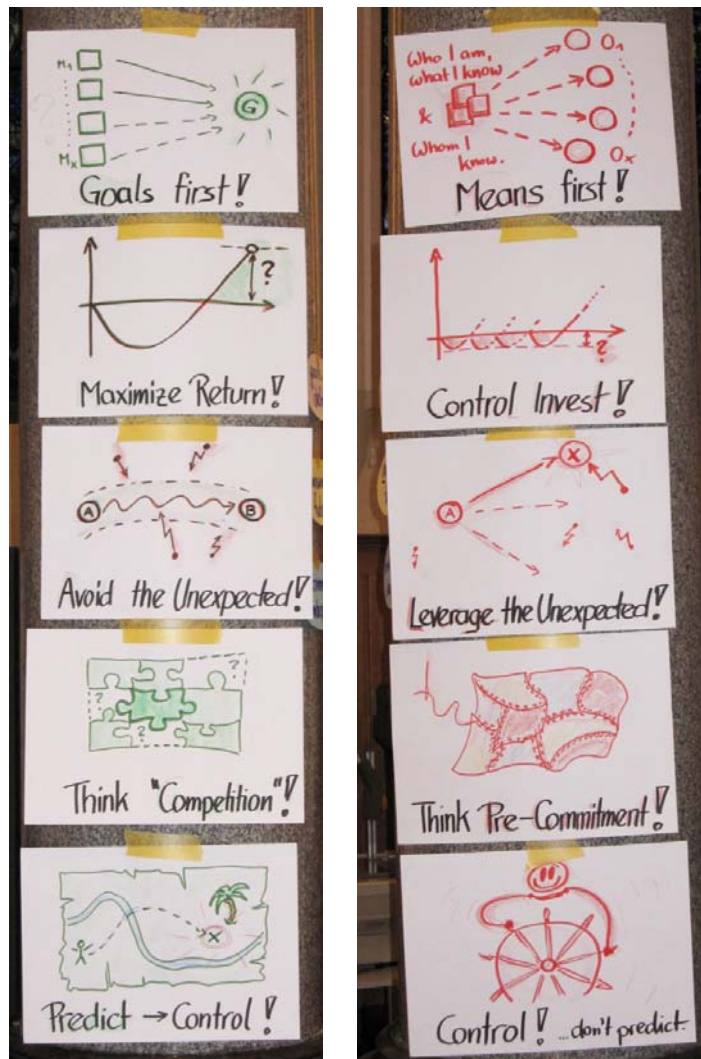 M1
Mx
G
Goals first!
?
Maximize Return!
A
B
Avoid the Unexpected!
?
?
?
Think "Competition"!
X
Predict → Control!
Who I am,
what I know
&
Whom I
know.
O1
Ox
Means first!
?
Control Invest!
A
X
Leverage the Unexpected!
Think Pre-Commitment!
Control! ...don't predict.